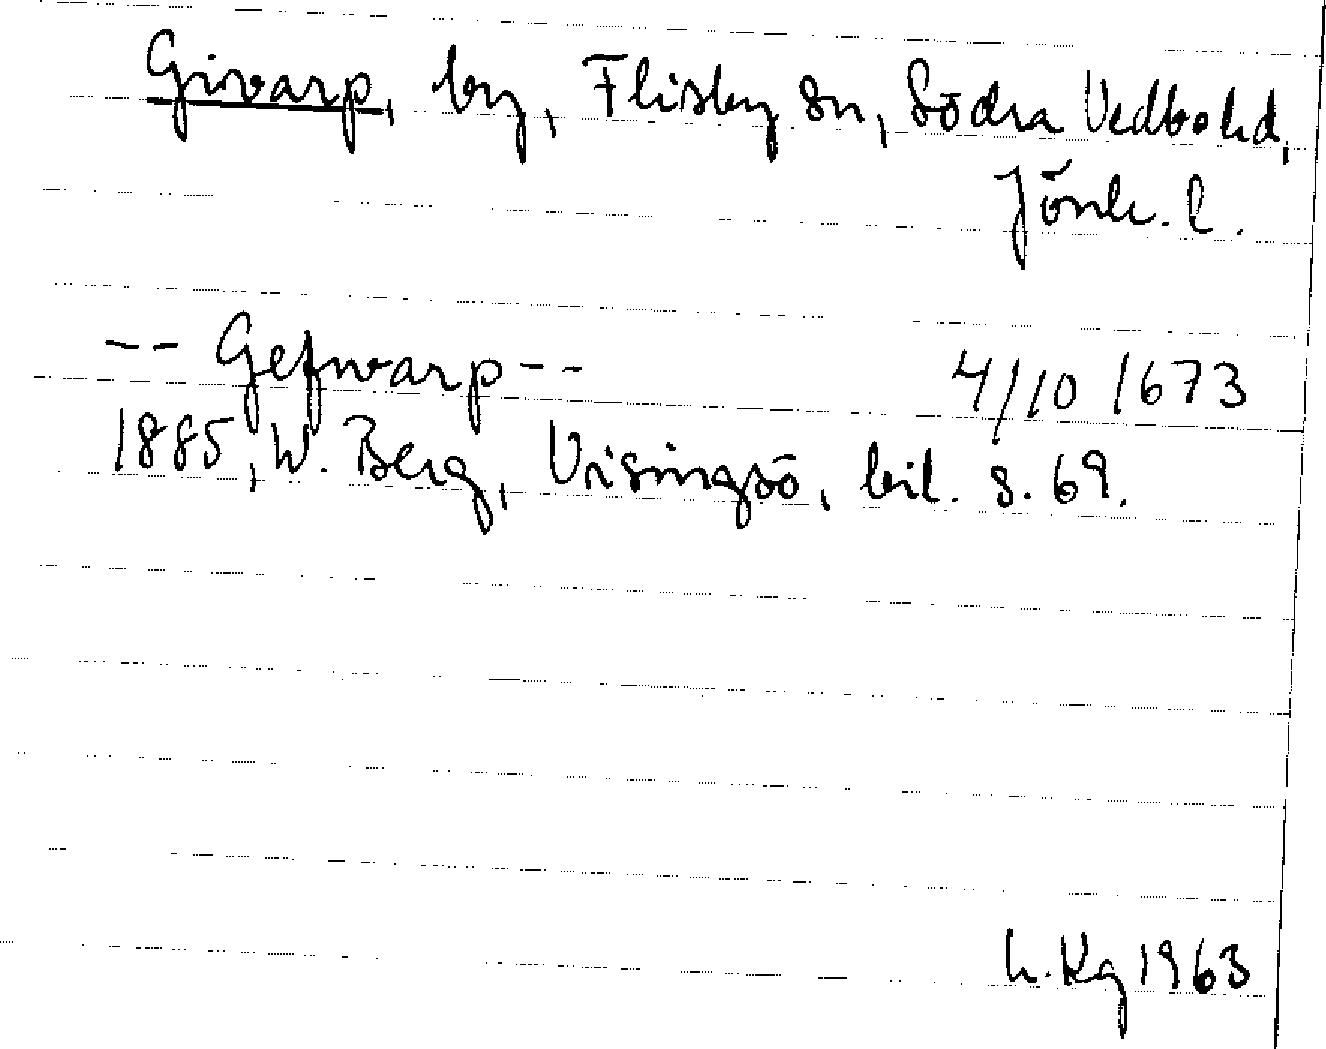 Givarp, by, Flisby sn, Södra Vedbo hd,
Jönk. l.
-- Gefwarp -- 4/10 1673
1885, W. Berg, Visingsö, bil. s. 69.
h. Kg 1963